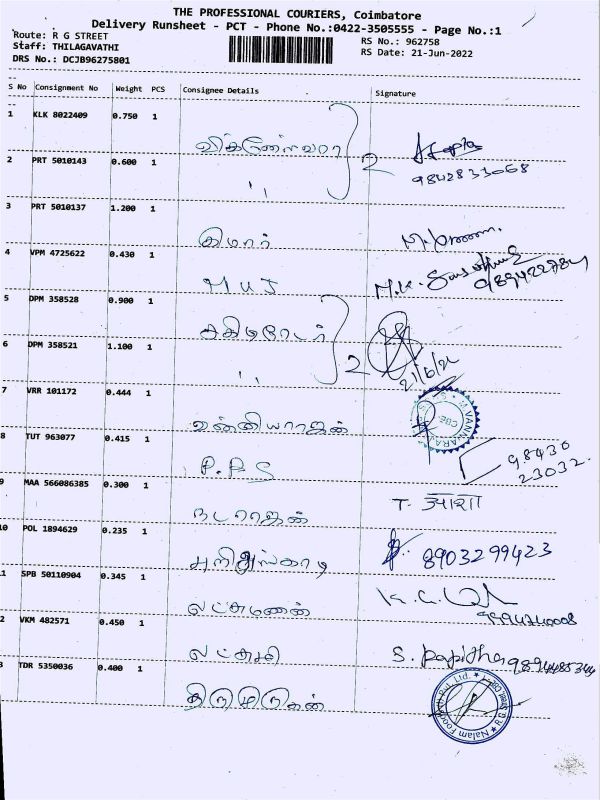 THE PROFESSIONAL COURIERS, Coimbatore
Delivery Runsheet - PCT - Phone No.:0422-3505555 - Page No.:1
Route: R G STREET
Staff: THILAGAVATHI
DRS No.: DCJB96275801
RS No.: 962758
RS Date: 21-Jun-2022
S No Consignment No Weight PCS Consignee Details Signature
1 KLK 8022409 0.750 1
விக்னேஸ்வரா 2
2 PRT 5010143 0.600 1
9842831068
,,
3 PRT 5010137 1.200 1
குமார்
4 VPM 4725622 0.430 1
M.K.
MUJ
5 DPM 358528 0.900 1
2
6 DPM 358521 1.100 1
,,
21/6/22
7 VRR 101172 0.444 1
வன்னியராஜன்
8 TUT 963077 0.415 1
P.P.S
98430
23032.
9 MAA 566086385 0.300 1
நடராஜன் T. आशा
10 POL 1894629 0.235 1
8903299423
11 SPB 50110904 0.345 1
லட்சுமணன் K.G.
2 VKM 482571 0.450 1
லட்சுமி S. Papitha 9894485344
3 TDR 5350036 0.400 1
திருமுருகன்
Nalam Foods